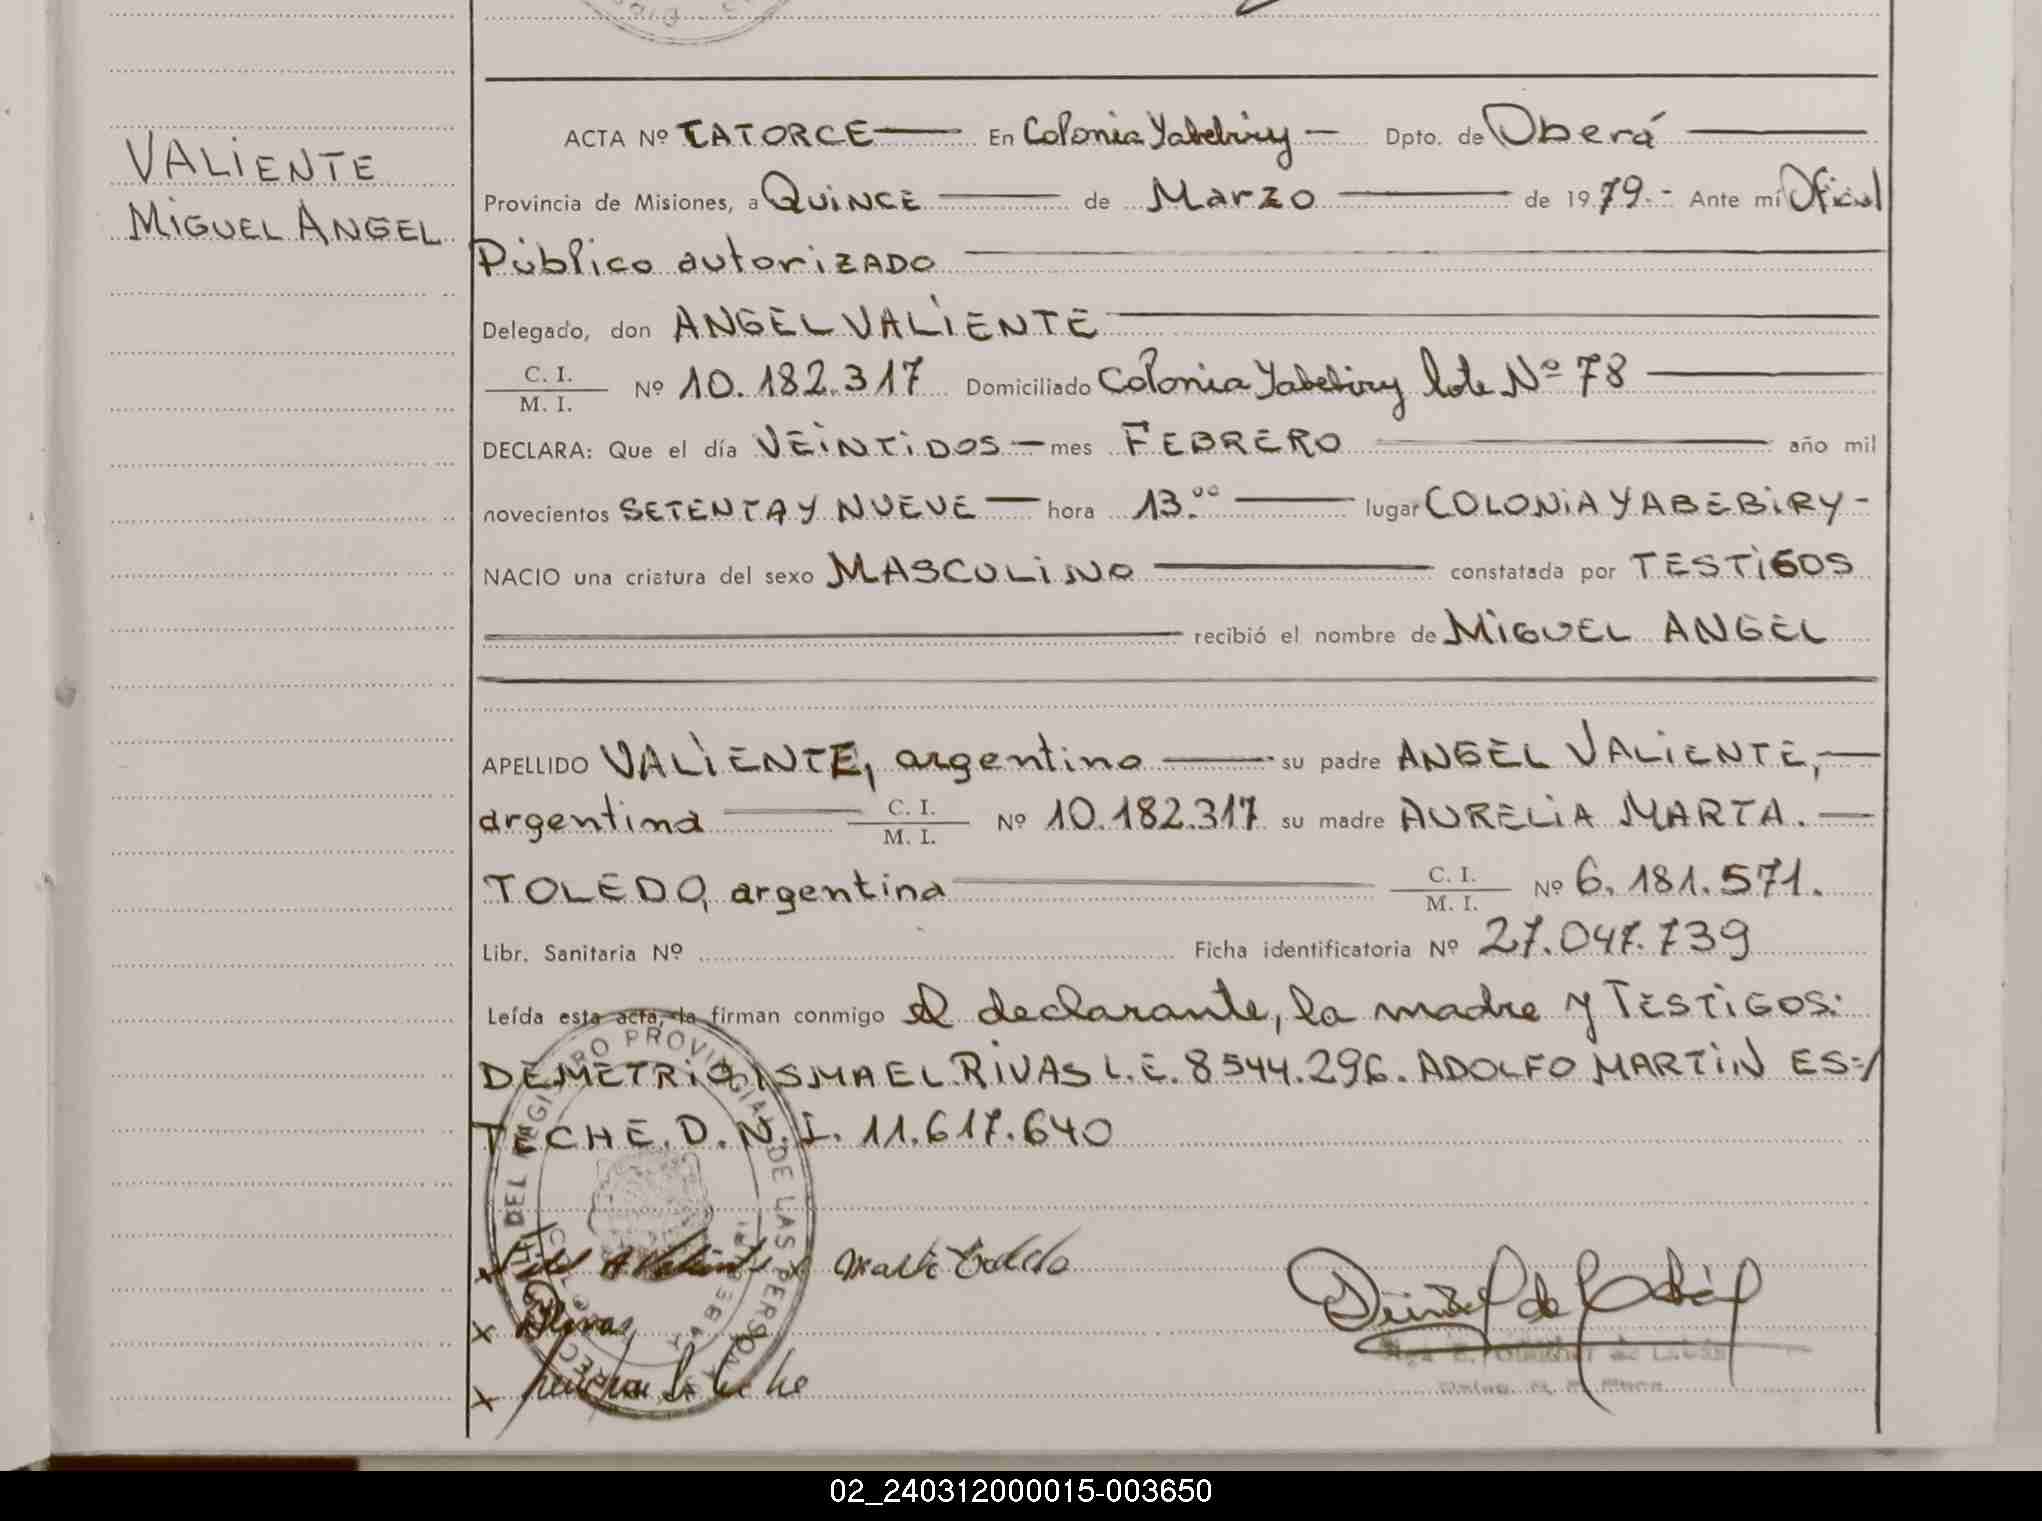 VALIENTE
MIGUEL ANGEL
ACTA Nº CATORCE En Colonia Yabebiry Dpto. de Oberá
Provincia de Misiones, a QUINCE de Marzo de 1979.- Ante mí Oficial
Público autorizADO
Delegado, don ANGEL VALIENTE
C. I.
M. I. Nº 10.182.317 Domiciliado Colonia Yabebiry lote Nº 78
DECLARA: Que el día VEINTIDOS mes FEBRERO año mil
novecientos SETENTA Y NUEVE hora 13.00 lugar COLONIA YABEBIRY-
NACIO una criatura del sexo MASCULINO constatada por TESTIGOS
recibió el nombre de MIGUEL ANGEL
APELLIDO VALIENTE, argentino su padre ANGEL VALIENTE,
argentina C. I.
M. I. Nº 10.182.317 su madre AURELIA MARTA.
TOLEDO, argentina C. I.
M. I. Nº 6.181.571.
Libr. Sanitaria Nº Ficha identificatoria Nº 27.047.739
Leída esta acta, la firman conmigo el declarante, la madre y TESTIGOS:
DEMETRIO ISMAEL RIVAS L.E. 8544.296. ADOLFO MARTIN ES=/
TECHE. D.N.I. 11.617.640
DEL REGISTRO PROVINCIAL DE LAS PERSONAS
x Valiente x Marta Toledo
x Rivas
x
02_240312000015-003650